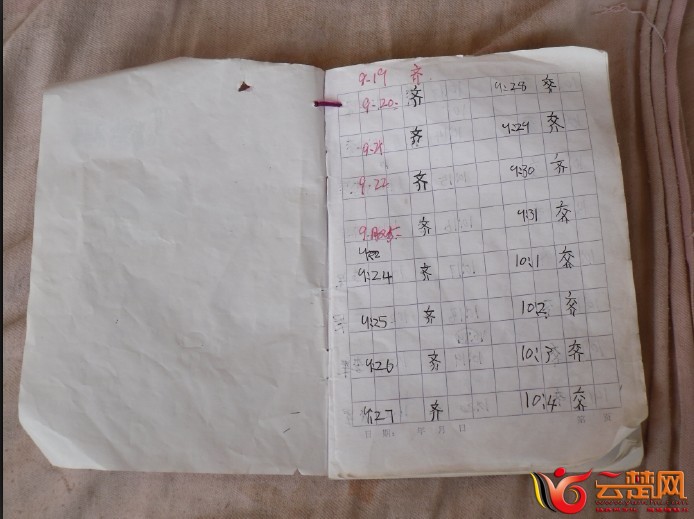 9-19 齐
9-20 齐
9-21 齐
9-22 齐
齐
9:24 齐
9:25 齐
9:26 齐
9:27 齐
9:28 齐
9:29 齐
9:30 齐
9:31 齐
10:1 齐
10:2 齐
10:3 齐
10:4 齐
日期: 年 月 日
第 页
云楚网